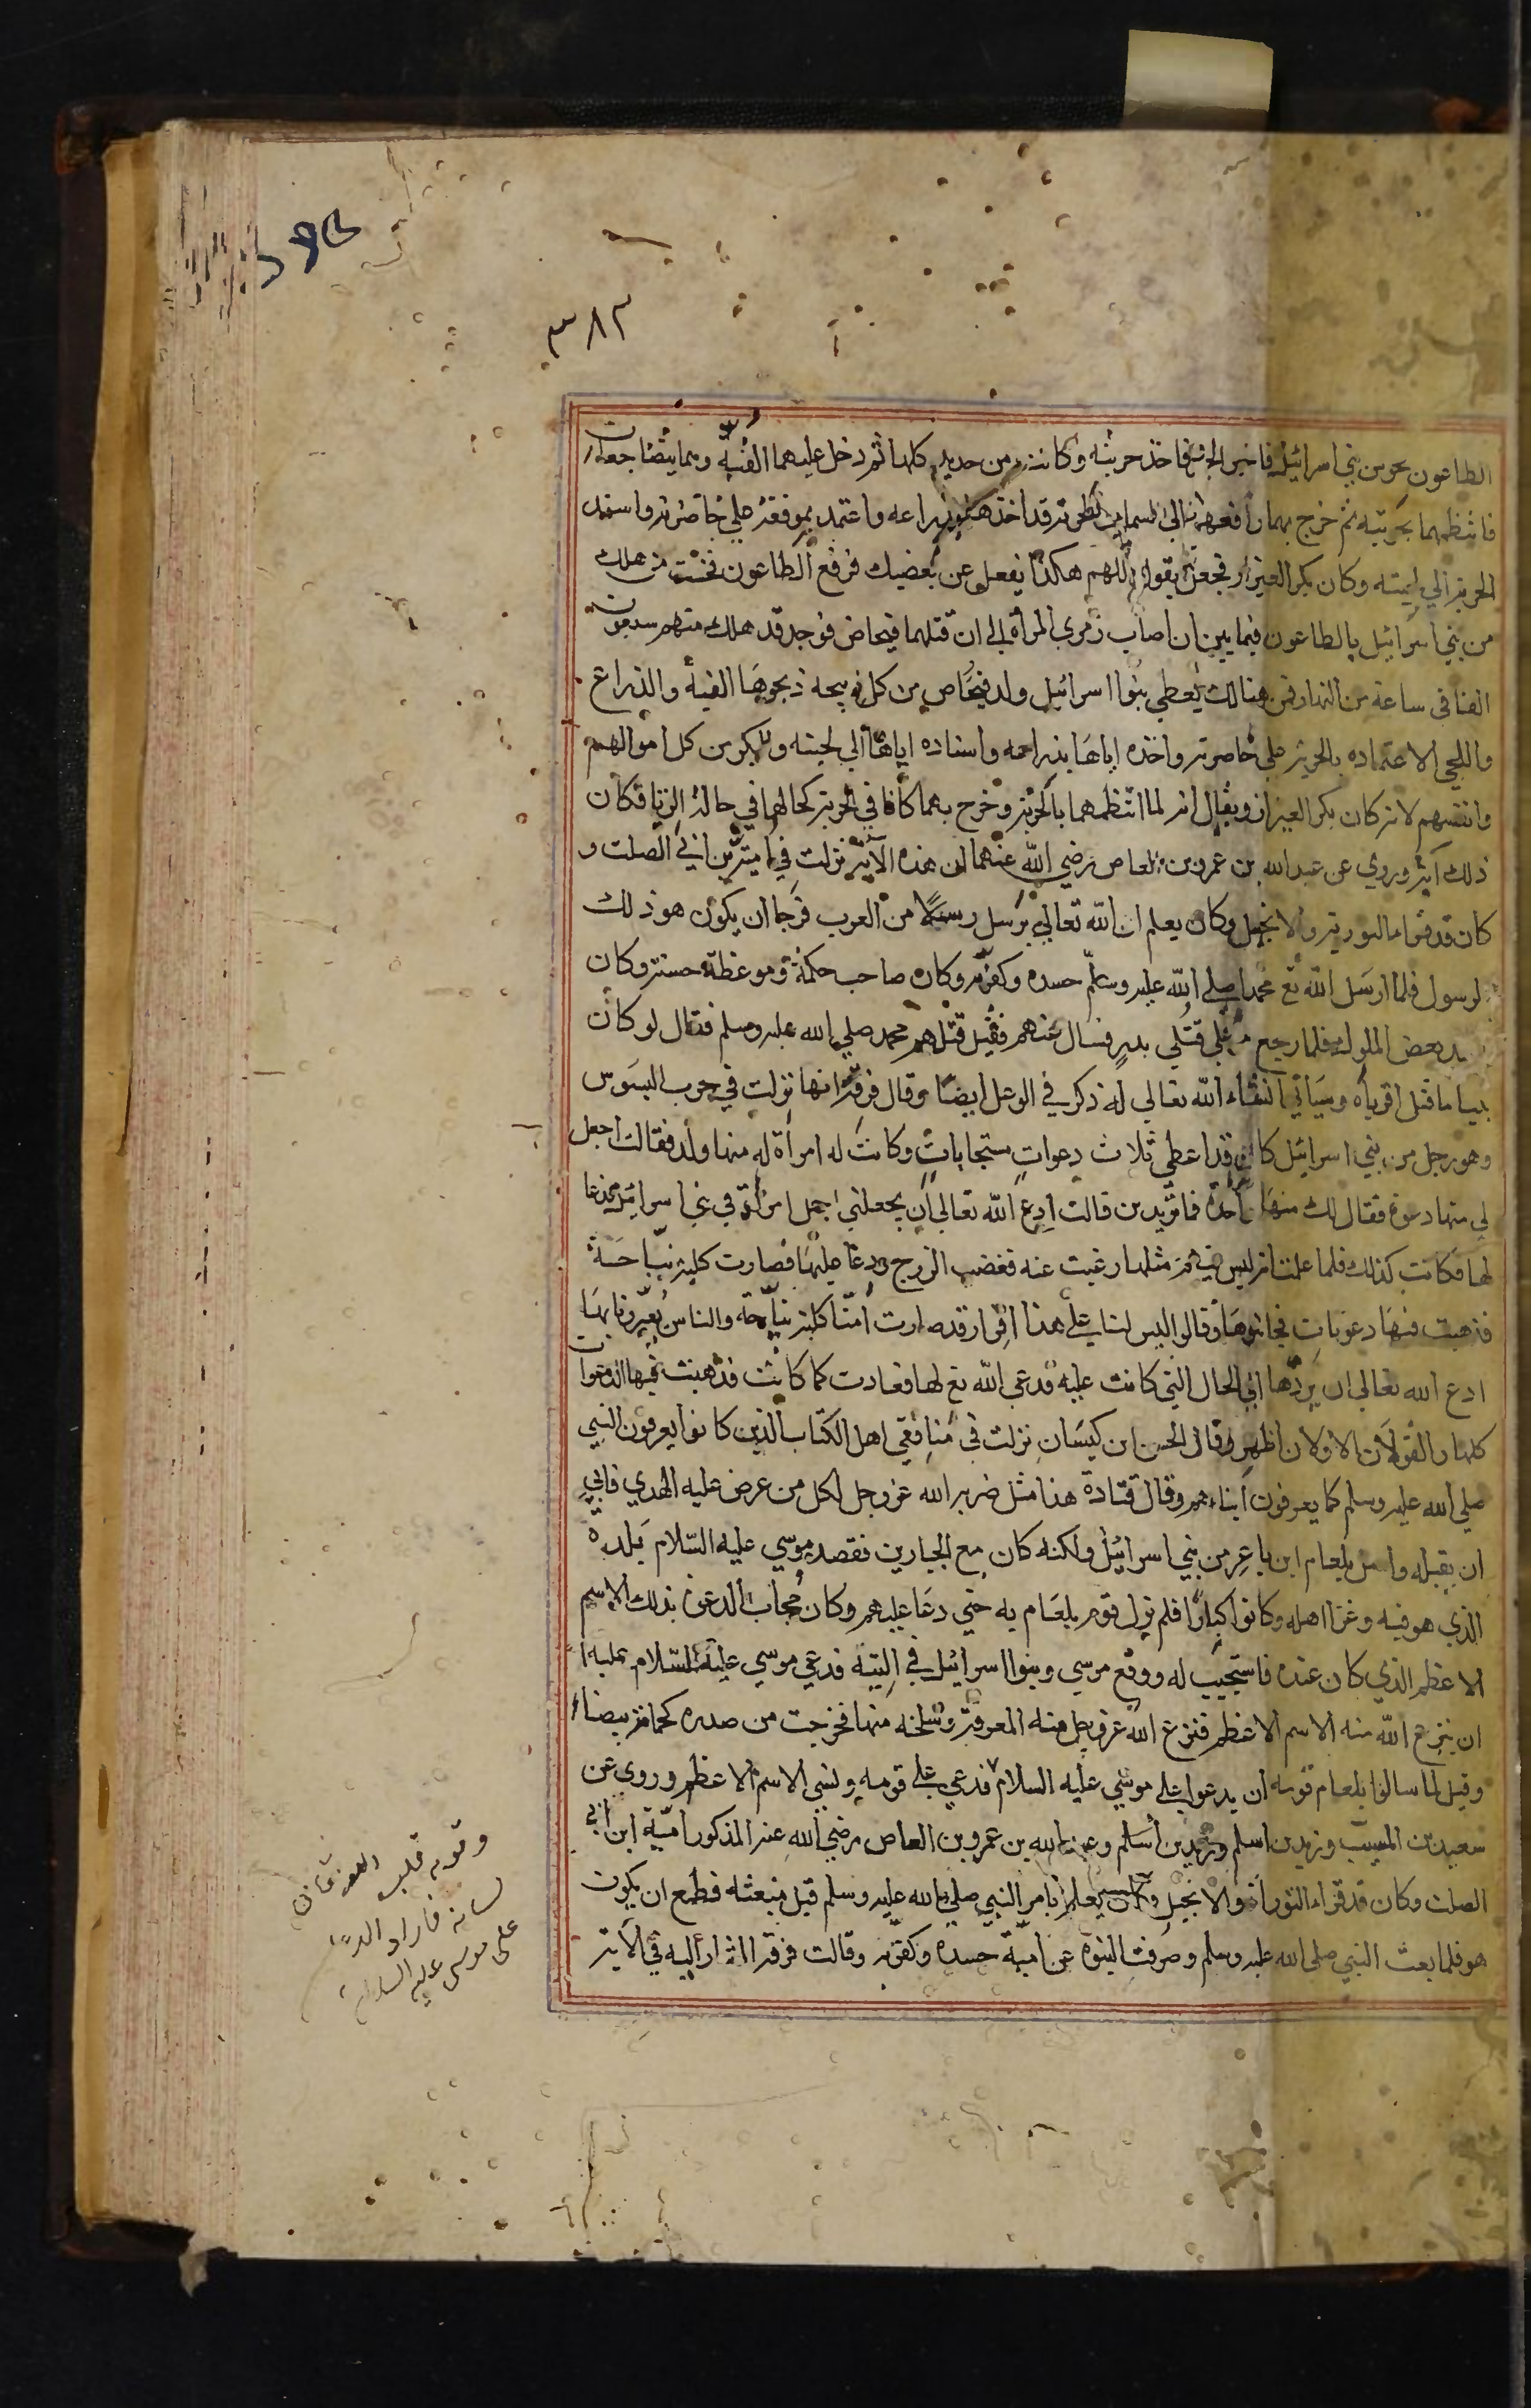 ٣٨٣
الطاعون يحوس بني اسرائيل فاخبر الخبر فاخذ حربته وكانت من حديد كلها ثم دخل عليهما القبة وهما متضاجعان
فانتظمهما بحربته ثم خرج بهما رافعهما الى السماء والحربة قد اخذها بذراعه واعتمد بمرفقه علي خاصرته واسند
الحربة الي لحيته وكان بكر العيزار فجعل يقول اللهم هكذا نفعل بمن يعصيك فرفع الطاعون فحسب من هلك
من بني اسرائيل بالطاعون فيما بين ان اصاب زمري المرأة الى ان قتلهما فنحاص فوجد قد هلك منهم سبعون
الفا في ساعة من النهار فمن هنالك يعطي بنوا اسرائيل ولد فنحاص من كل ذبيحة ذبحوها القبة والذراع
واللحي لاعتماده بالحربة علي خاصرته واخذه اياها بذراعه واسناده اياها الي لحيته والبكر من كل اموالهم
وانفسهم لانه كان بكر العيزار ويقال انه لما انتظمهما بالحربة وخرج بهما كانا في الحربة كحالهما في حالة الزنا فكان
ذلك آية وروي عن عبد الله بن عمرو بن العاص رضي الله عنهما ان هذه الآية نزلت في امية بن ابي الصلت و
كان قد قرا التورية والانجيل وكان يعلم ان الله تعالي يرسل رسولا من العرب فرجا ان يكون هو ذلك
الرسول فلما ارسل الله تع محمدا صلي الله عليه وسلم حسده وكفر به وكان صاحب حكمة وموعظة حسنة وكان
بعض الملوك فلما رجع مر علي قتلي بدر فسال عنهم فقيل قتلهم محمد صلي الله عليه وسلم فقال لو كان
نبيا ما قتل اقرباه وسياتي انشاء الله تعالي له ذكر في الوعل ايضا وقال فرقة انها نزلت في حرب البسوس
وهو رجل من بني اسرائيل كان قد اعطي ثلاث دعوات مستجابات وكانت له امراة له منها ولد فقالت اجعل
لي منها دعوة فقال لك منها واحدة فما تريدين قالت ادع الله تعالي ان يجعلني اجمل امراة في بني اسرائيل فدعا
لها فكانت كذلك فلما علمت انه ليس فيهم مثلها رغبت عنه فغضب الزوج ودعا عليها فصارت كلبة نباحة
فذهبت فيها دعوتان فجاء بنوها وقالوا ليس لنا علي هذا قرار قد صارت امنا كلبة نباحة والناس يعيرونا بها
ادع الله تعالي ان يردها الي الحال التي كانت عليه فدعي الله تع لها فعادت كما كانت فذهبت فيها الدعوات
كلها والقولان الاولان اظهر وقال الحسن ابن كيسان نزلت في منافقي اهل الكتاب الذين كانوا يعرفون النبي
صلي الله عليه وسلم كما يعرفون ابناءهم وقال قتادة هذا مثل ضربه الله عز وجل لكل من عرض عليه الهدي فابي
ان يقبله واصل بلعام ابن باعر من بني اسرائيل ولكنه كان مع الجبارين فقصد موسي عليه السلام بلده
الذي هو فيه وغزا اهله وكانوا كبارا فلم يزل قوم بلعام به حتي دعا عليهم وكان مجاب الدعوة بذلك الاسم
الاعظم الذي كان عنده فاستجيب له ووقع موسي وبنوا اسرائيل في التيه فدعي موسي عليه السلام عليه
ان ينزع الله منه الاسم الاعظم فنزع الله عز وجل منه المعرفة وسلخه منها فخرجت من صدره كحمامة بيضاء
وقيل لما سالوا بلعام قومه ان يدعوا علي موسي عليه السلام فدعي علي قومه ونسي الاسم الاعظم وروي عن
سعيد بن المسيب وزيد بن اسلم وعبد الله بن عمرو بن العاص رضي الله عنه المذكور امية ابن ابي
الصلت وكان قد قراء التوراة والانجيل وكان يعلم بامر النبي صلي الله عليه وسلم قبل مبعثه فطمع ان يكون
هو فلما بعث النبي صلى الله عليه وسلم وصرفت النبوة عن امية حسده وكفر به وقالت فرقة اشار اليه في الآية
وقومه قلب
لسانه فاراد الدعا
على موسى عليه السلام